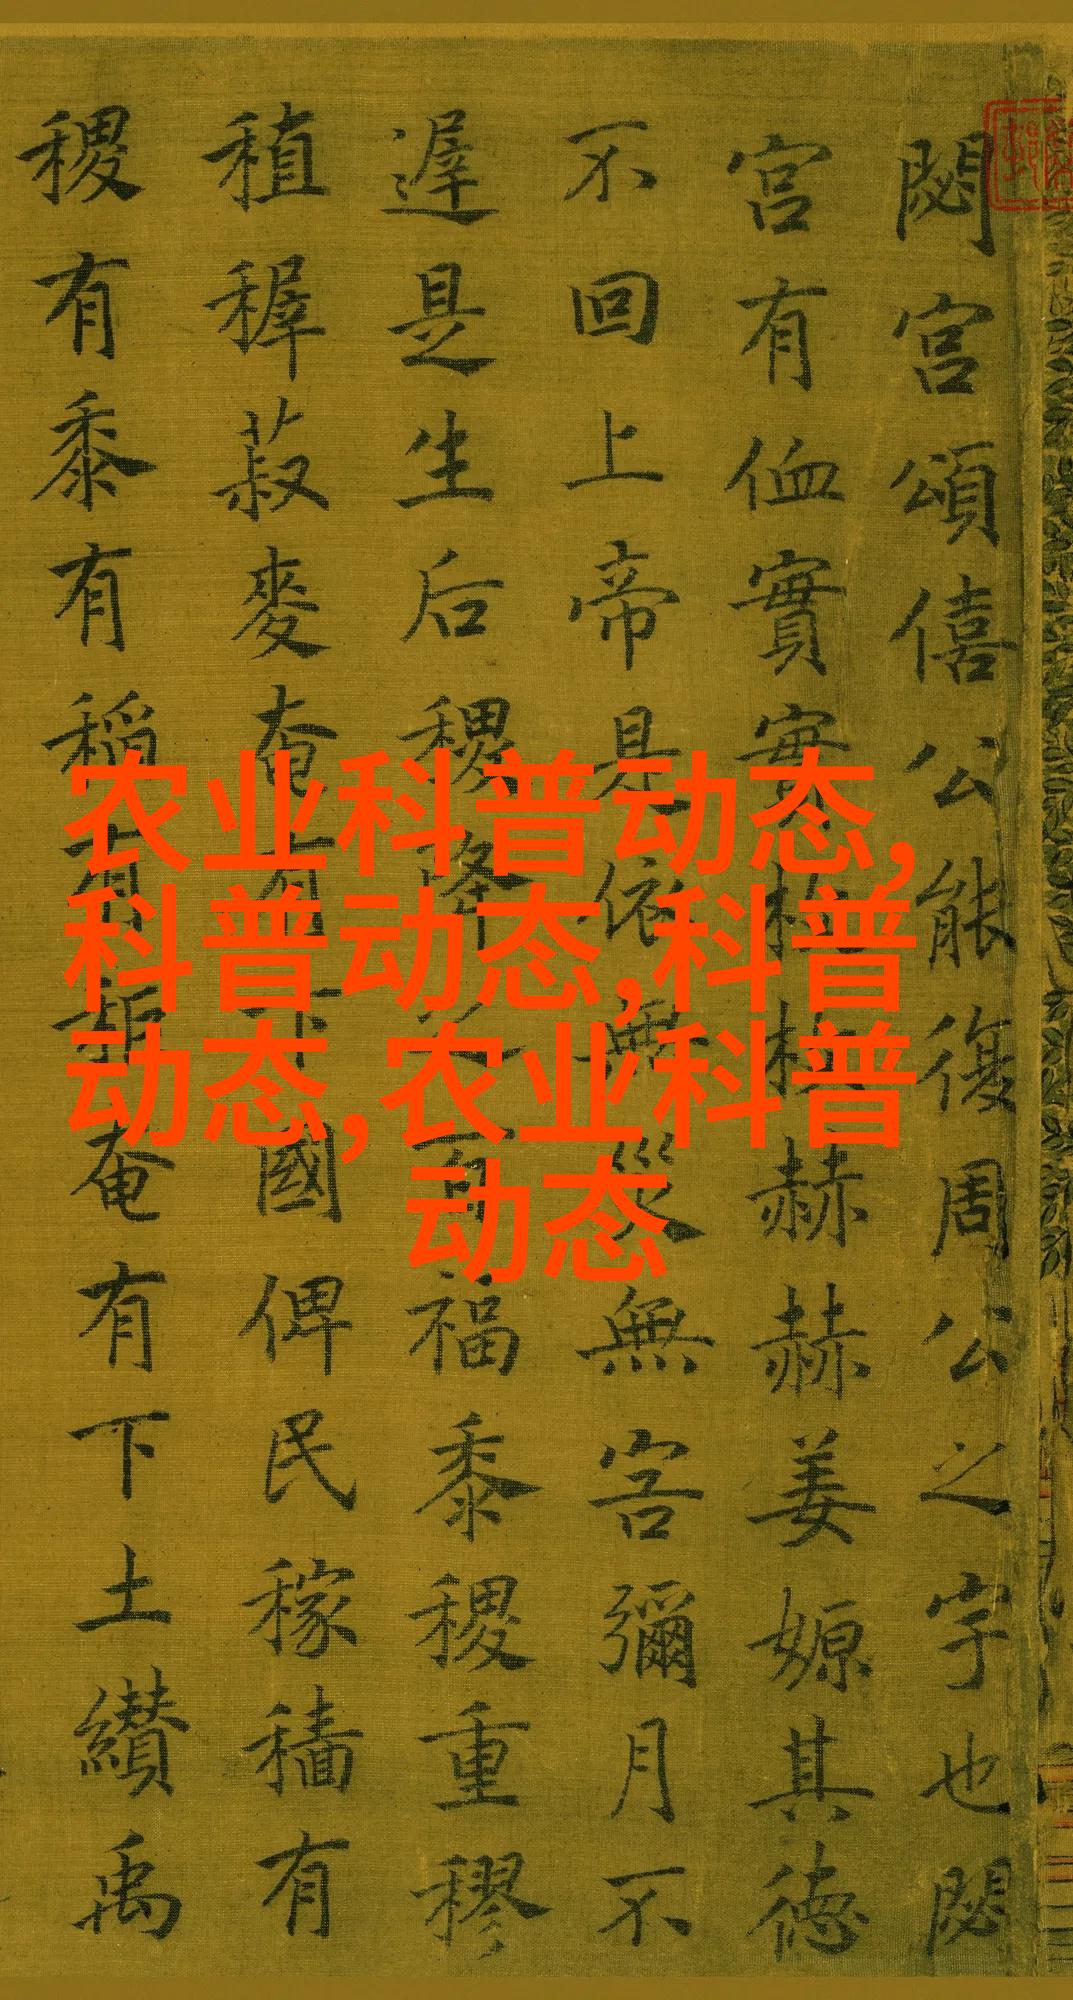 閟宮頌僖公能復周公之宇也閟
宮有侐實實枚枚赫赫姜嫄其德
不回上帝是依無災無害彌月不
遲是生后稷降之百福黍稷重穋
稙稺菽麥奄有下國俾民稼穡有
稷有黍有稻有秬奄有下土纘禹
农业科普动态,
科普动态,科普
动态,农业科普
动态